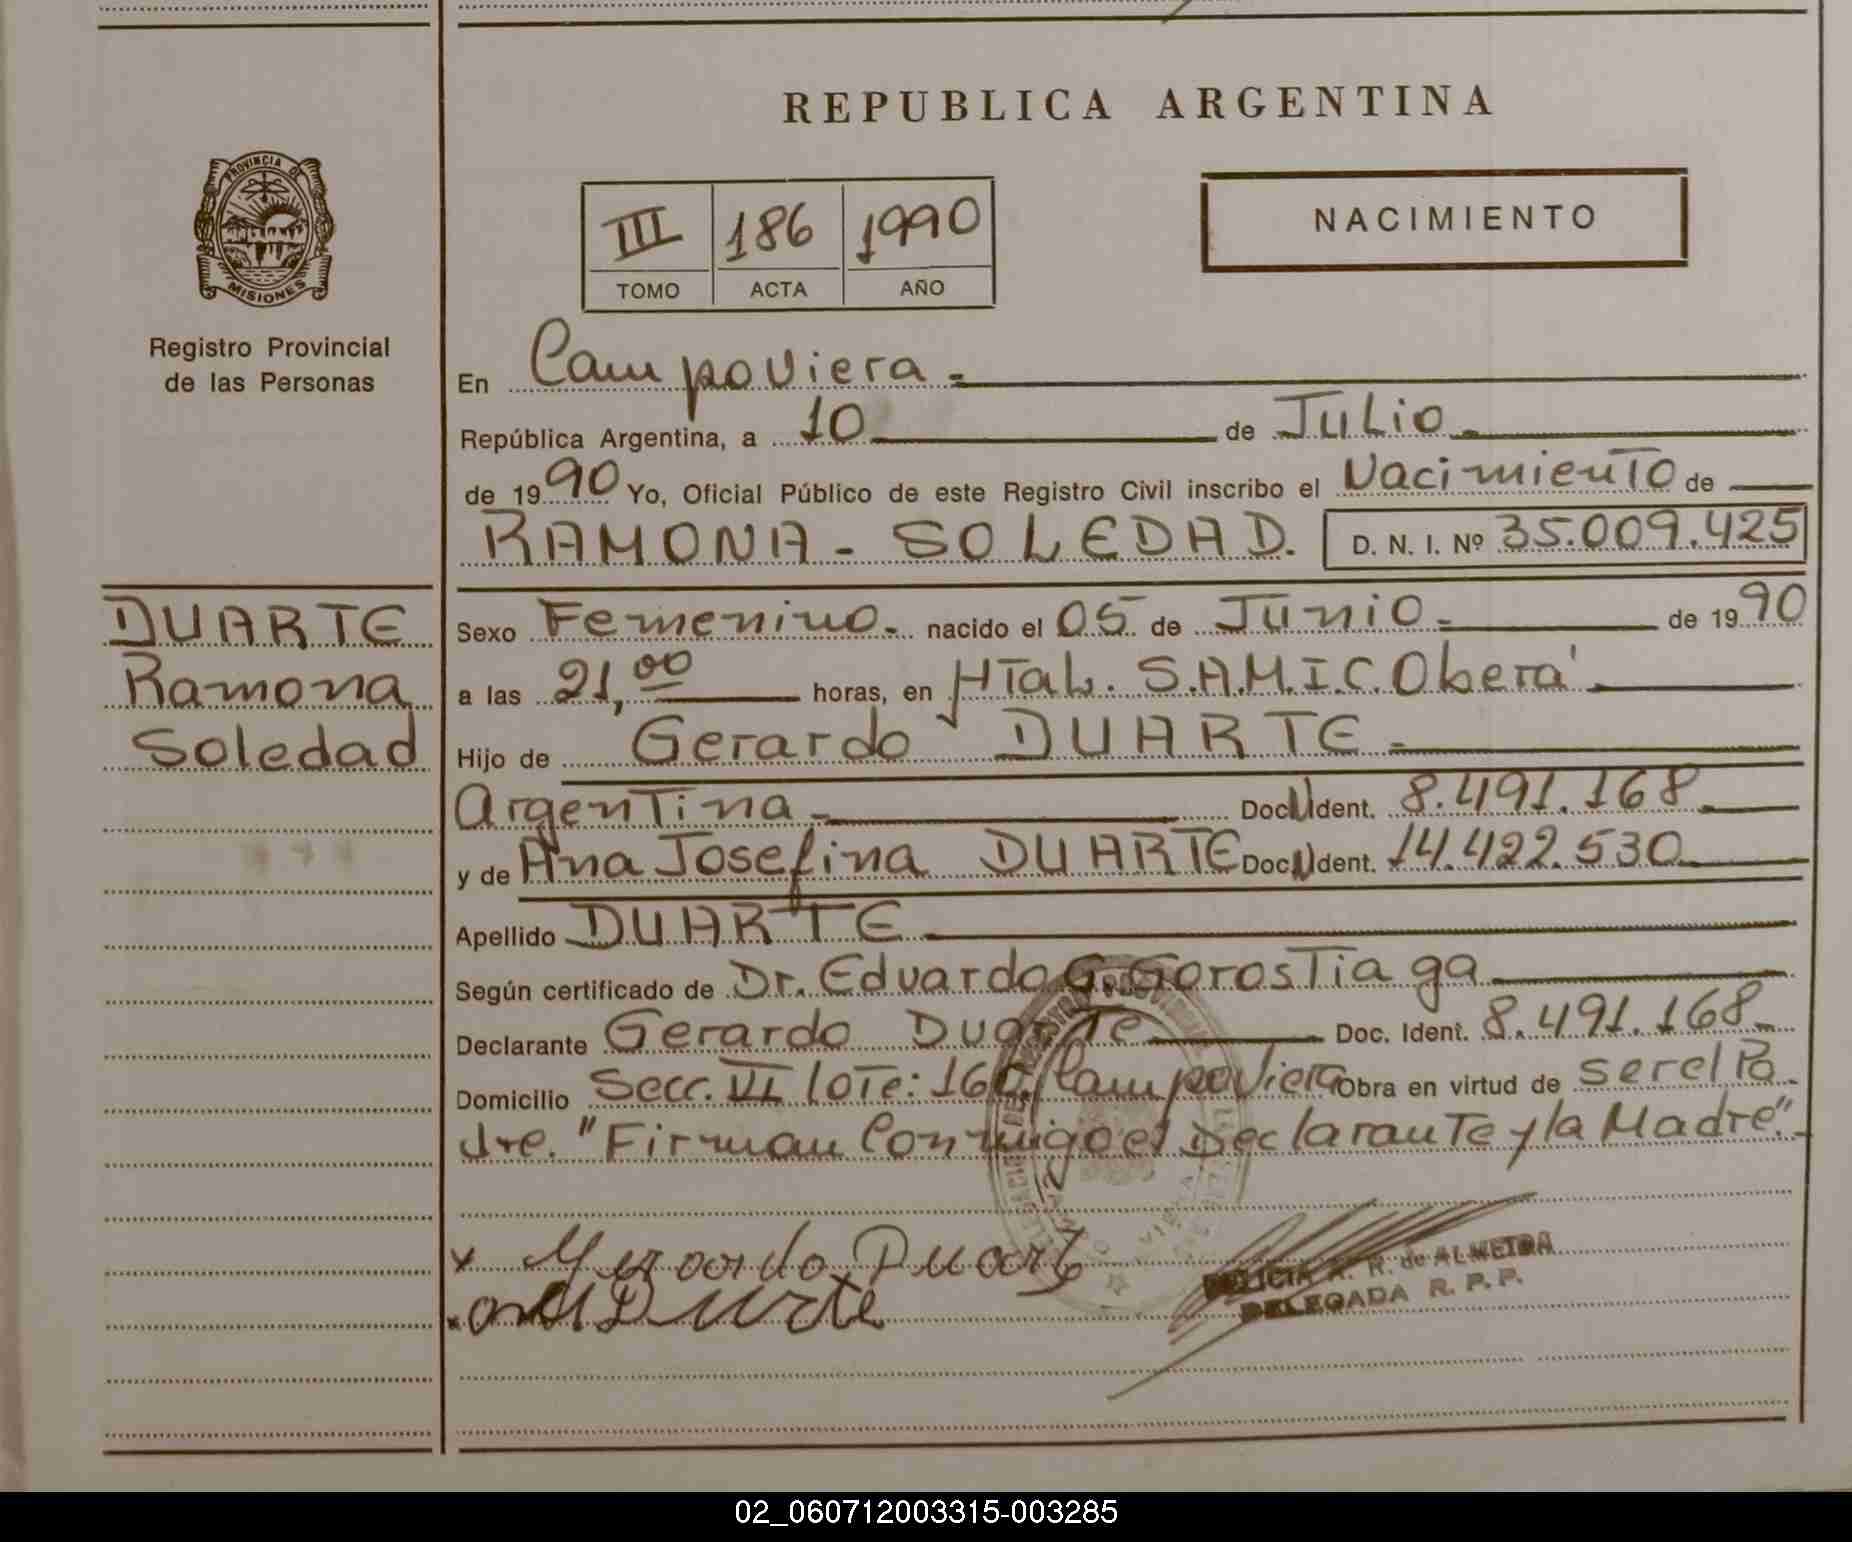 REPUBLICA ARGENTINA
PROVINCIA DE
MISIONES
Registro Provincial
de las Personas
III 186 1990
TOMO ACTA AÑO
NACIMIENTO
En Campoviera.-
República Argentina, a 10 de Julio.-
de 1990 Yo, Oficial Público de este Registro Civil inscribo el Nacimiento de
RAMONA - SOLEDAD. D. N. I. Nº 35.009.425
DUARTE
Ramona
Soledad
Sexo Femenino.- nacido el 05 de Junio.- de 1990
a las 21,00 horas, en Htal. S.A.M.I.C. Oberá
Hijo de Gerardo DUARTE.-
Argentina.- Doc N Ident. 8.491.168.
y de Ana Josefina DUARTE Doc N Ident. 14.422.530
Apellido DUARTE
Según certificado de Dr. Eduardo G. Gorostiaga
Declarante Gerardo Duarte Doc. Ident. 8.491.168
Domicilio Secc. VI lote: 160 Campo Viera Obra en virtud de ser el Pa
dre. "Firman Conmigo el Declarante y la Madre".-
x Gerardo Duarte
x Duarte
A. R. de ALMEIDA
DELEGADA R. P. P.
02_060712003315-003285